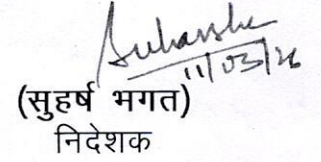 Suharsha
11/03/26
(सुहर्ष भगत)
निदेशक